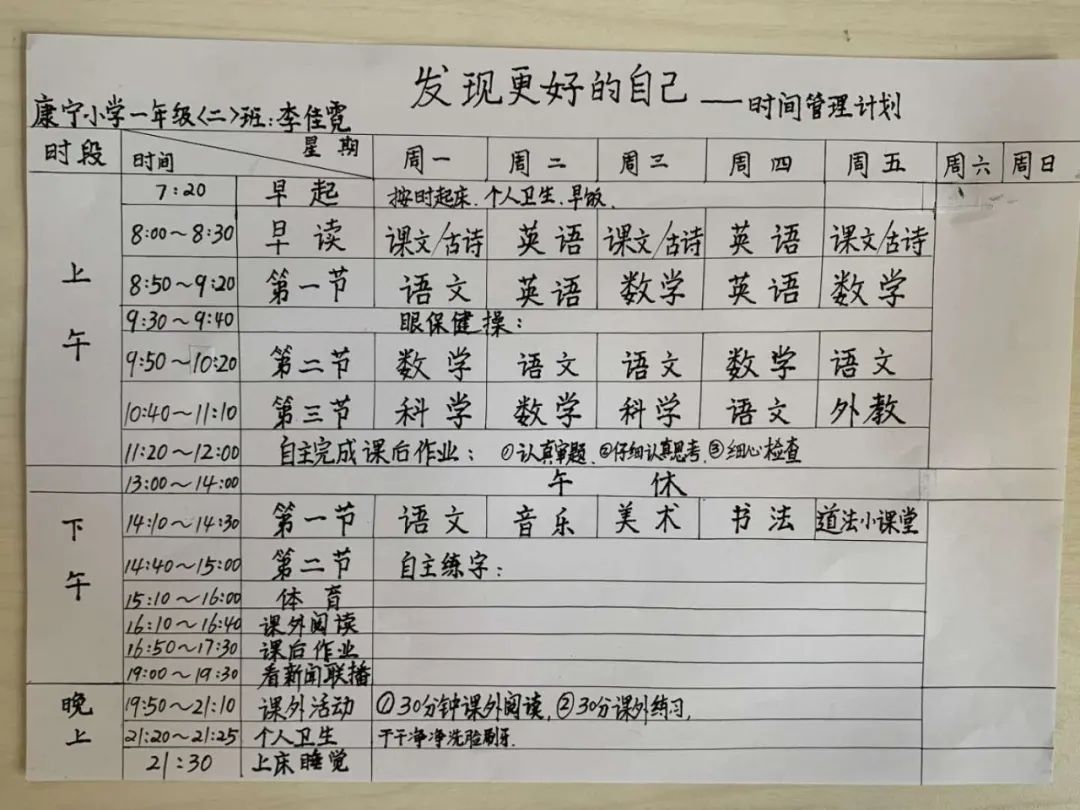 发现更好的自己——时间管理计划
康宁小学一年级<二>班:李佳霓
时段 时间 星期 周一 周二 周三 周四 周五 周六 周日
上午
7:20 早起 按时起床、个人卫生、早饭、
8:00~8:30 早读 课文/古诗 英语 课文/古诗 英语 课文/古诗
8:50~9:20 第一节 语文 英语 数学 英语 数学
9:30~9:40 眼保健操:
9:50~10:20 第二节 数学 语文 语文 数学 语文
10:40~11:10 第三节 科学 数学 科学 语文 外教
11:20~12:00 自主完成课后作业: ①认真审题、②仔细认真思考、③细心检查
13:00~14:00 午休
下午
14:10~14:30 第一节 语文 音乐 美术 书法 道法小课堂
14:40~15:00 第二节 自主练字:
15:10~16:00 体育
16:10~16:40 课外阅读
16:50~17:30 课后作业
19:00~19:30 看新闻联播
晚上
19:50~21:10 课外活动 ①30分钟课外阅读,②30分课外练习,
21:20~21:25 个人卫生 干干净净洗脸刷牙.
21:30 上床睡觉